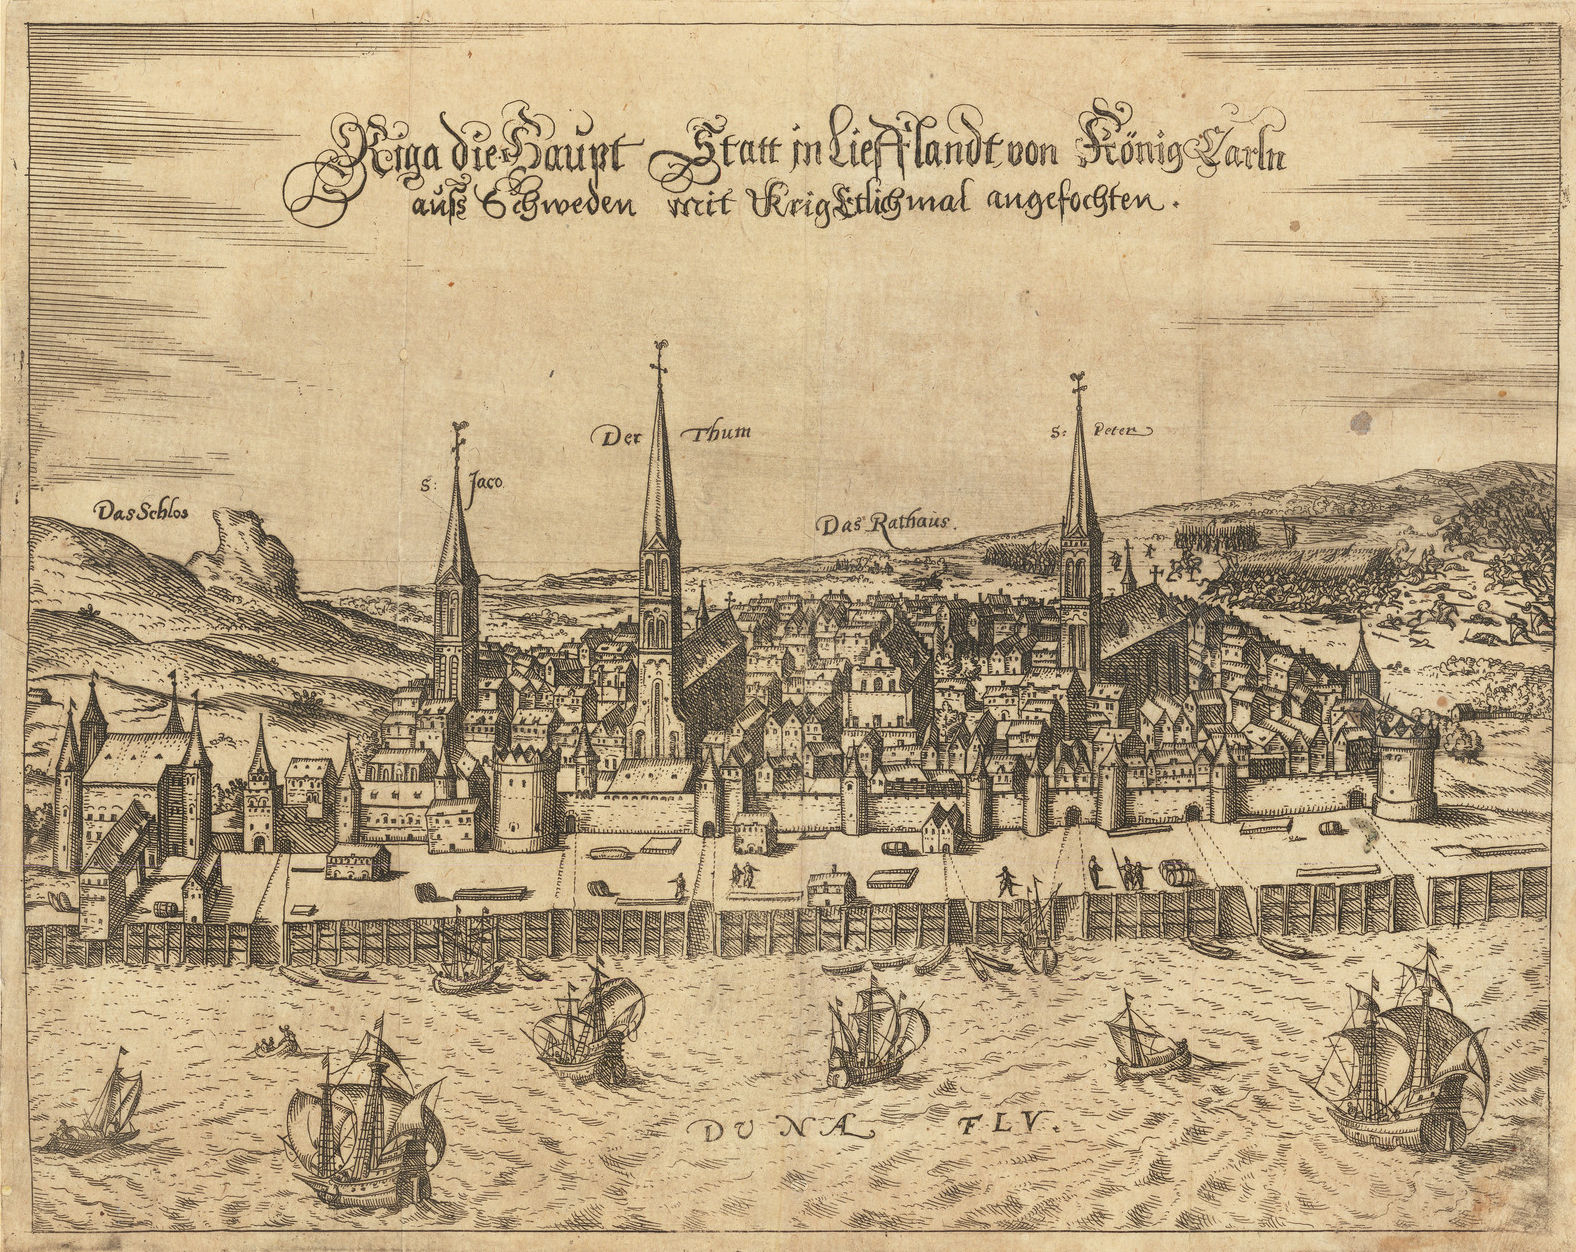 Riga die Haupt Statt in Liefflandt von König Carln
auss Schweden mit Krig Etlichmal angefochten.
Der Thum
S: Peter
S: Jaco
Das Schlos
Das Rathaus.
DUNÆ FLV.